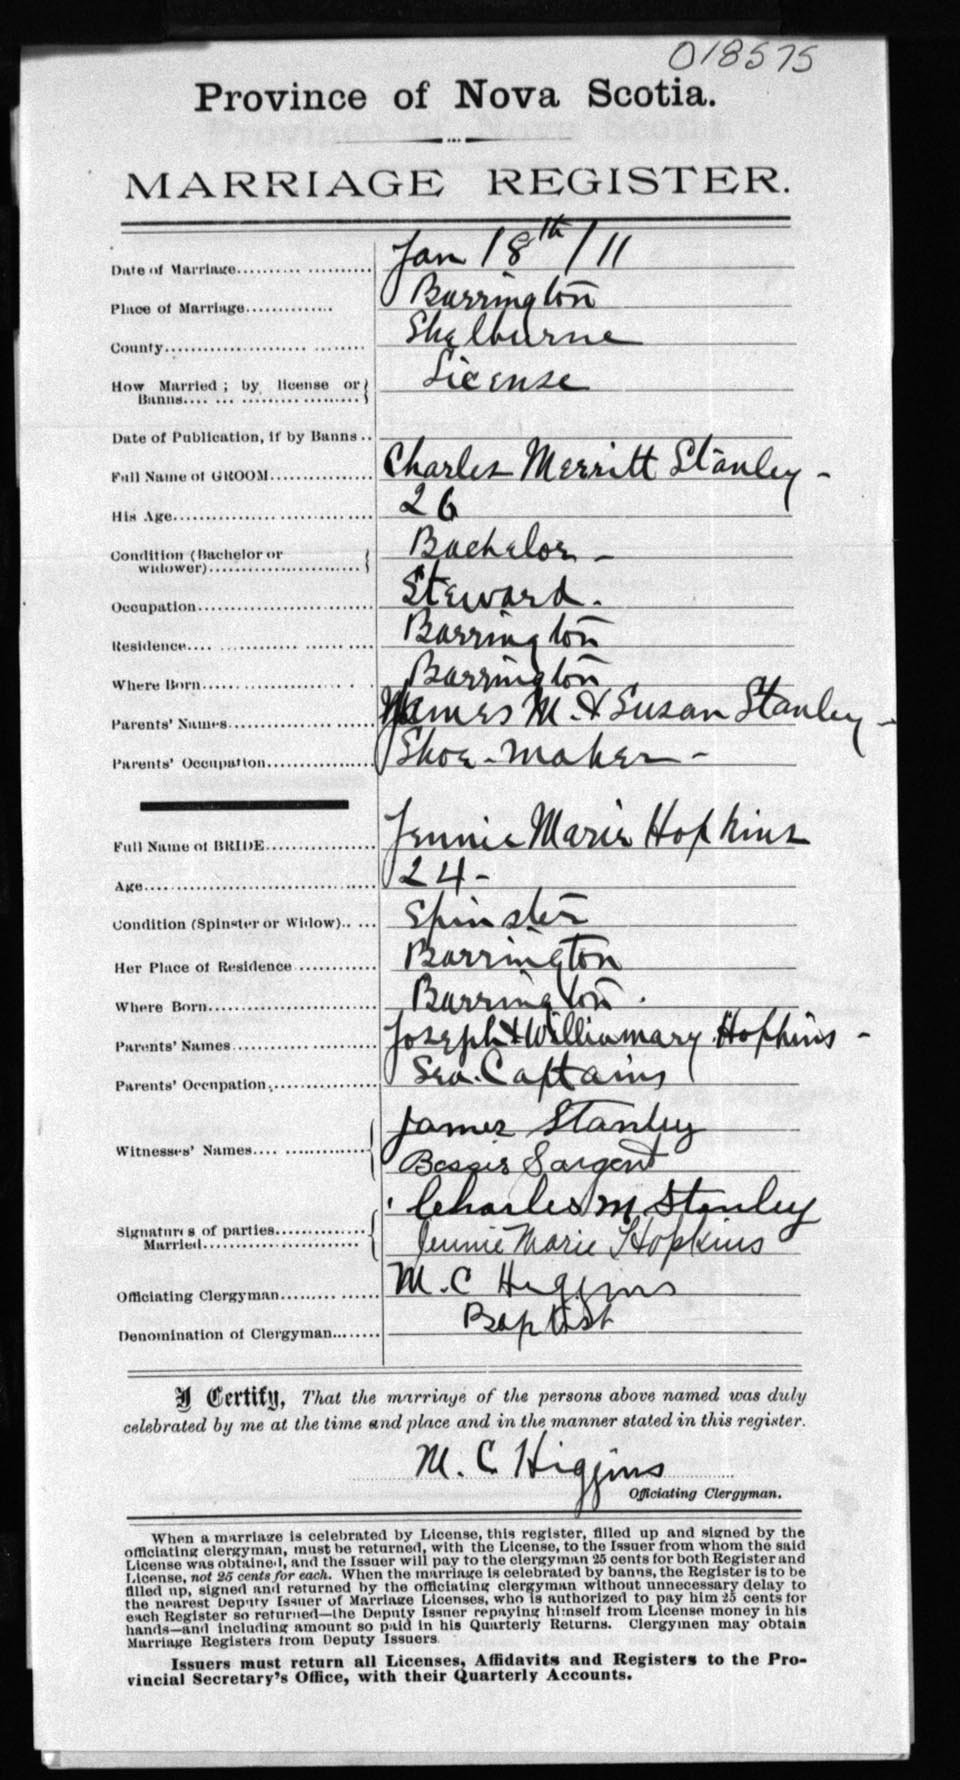 018575
Province of Nova Scotia.
MARRIAGE REGISTER.
Date of Marriage.......... Jan 18th/11
Place of Marriage............. Barrington
County............................ Shelburne
How Married ; by license or Banns.................... License
Date of Publication, if by Banns ..
Full Name of GROOM................ Charles Merritt Stanley -
His Age............................ 26
Condition (Bachelor or widower)....................... Bachelor -
Occupation........................ Steward.
Residence.... ..................... Barrington
Where Born........................ Barrington
Parents' Names.................... James M. & Susan Stanley -
Parents' Occupation............... Shoe-maker -
Full Name of BRIDE................ Jennie Marie Hopkins
Age................................ 24 -
Condition (Spinster or Widow).. ... Spinster
Her Place of Residence ............ Barrington
Where Born........................ Barrington.
Parents' Names.................... Joseph & Williamary Hopkins -
Parents' Occupation,.............. Sea. Captains
Witnesses' Names.... ............. James Stanley
Bessie Sargent
Signatures of parties Married....................... Charles M Stanley
Jennie Marie Hopkins
Officiating Clergyman............. M. C Higgins
Denomination of Clergyman....... Baptist
I Certify, That the marriage of the persons above named was duly
celebrated by me at the time and place and in the manner stated in this register.
M. C Higgins
Officiating Clergyman.
When a marriage is celebrated by License, this register, filled up and signed by the
officiating clergyman, must be returned, with the License, to the Issuer from whom the said
License was obtained, and the Issuer will pay to the clergyman 25 cents for both Register and
License, not 25 cents for each. When the marriage is celebrated by banns, the Register is to be
filled up, signed and returned by the officiating clergyman without unnecessary delay to
the nearest Deputy Issuer of Marriage Licenses, who is authorized to pay him 25 cents for
each Register so returned—the Deputy Issuer repaying himself from License money in his
hands—and including amount so paid in his Quarterly Returns. Clergymen may obtain
Marriage Registers from Deputy Issuers
Issuers must return all Licenses, Affidavits and Registers to the Pro-
vincial Secretary's Office, with their Quarterly Accounts.